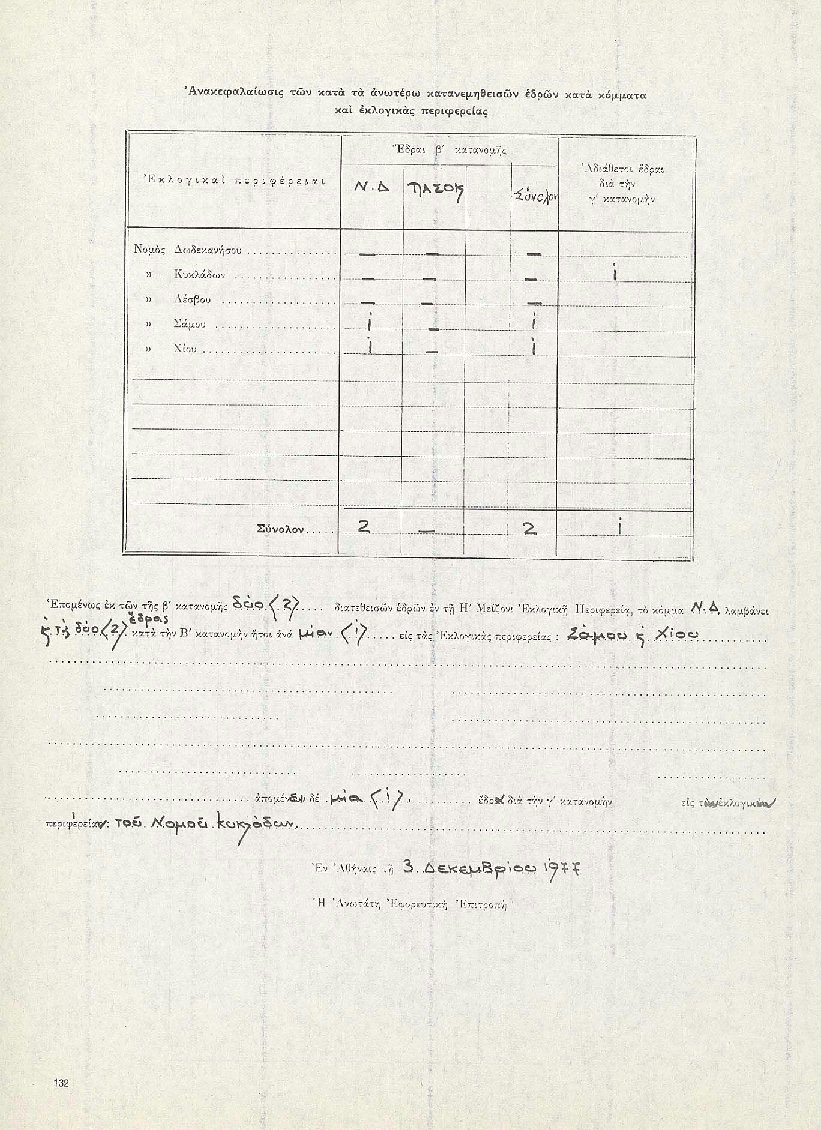 Ἀνακεφαλαίωσις τῶν κατὰ τὰ ἀνωτέρω κατανεμηθεισῶν ἑδρῶν κατὰ κόμματα
καὶ ἐκλογικὰς περιφερείας
Ἐκλογικαὶ περιφέρειαι
Ἕδραι β' κατανομῆς
Ἀδιάθετοι ἕδραι
διὰ τὴν
γ' κατανομήν
Ν.Δ ΠΑΣΟΚ Σύνολον
Νομὸς Δωδεκανήσου — — —
» Κυκλάδων — — — 1
» Λέσβου — — —
» Σάμου 1 — 1
» Χίου 1 — 1
Σύνολον 2 — 2 1
Ἑπομένως ἐκ τῶν τῆς β' κατανομῆς δύο (2) διατεθεισῶν ἑδρῶν ἐν τῇ Η' Μείζονι Ἐκλογικῇ Περιφερείᾳ, τὸ κόμμα Ν.Δ. λαμβάνει
ἕδρας
δύο (2) κατὰ τὴν Β' κατανομὴν ἤτοι ἀνὰ μίαν (1) εἰς τὰς Ἐκλογικὰς περιφερείας : Σάμου ϗ Χίου
δὲ μία (1) διὰ τὴν γ' κατανομὴν εἰς
τοῦ Νομοῦ Κυκλάδων.
Ἐν Ἀθήναις τῇ 3 Δεκεμβρίου 1977
Ἡ Ἀνωτάτη Ἐφορευτικὴ Ἐπιτροπὴ
132